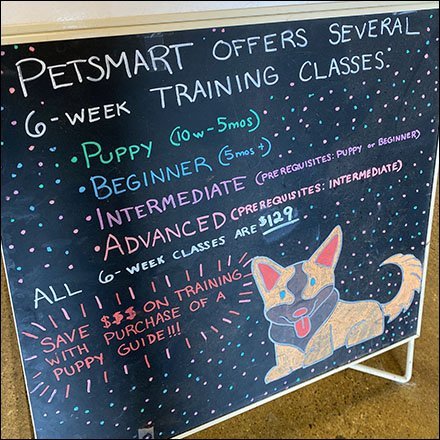 PETSMART OFFERS SEVERAL
6-WEEK TRAINING CLASSES.
• PUPPY (10W-5mos)
• BEGINNER (5mos +)
• INTERMEDIATE (PREREQUISITES: PUPPY or BEGINNER)
• ADVANCED (PREREQUISITES: INTERMEDIATE)
ALL 6-WEEK CLASSES ARE $129
SAVE $$$ ON TRAINING
WITH PURCHASE OF A
PUPPY GUIDE!!!